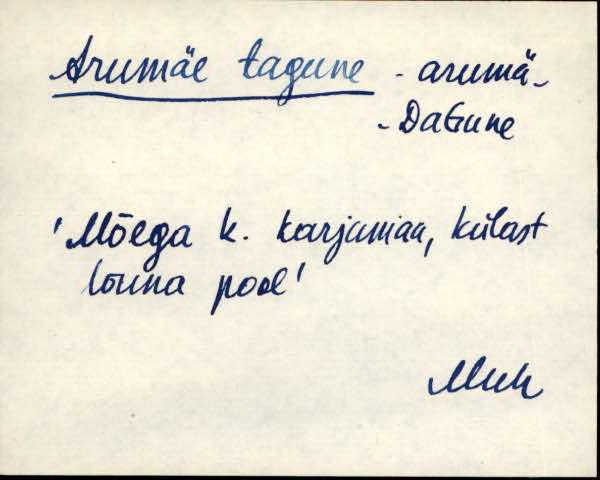 Arumäe tagune - arumä-
-DaGune
'Mõega k. karjamaa, külast
lõuna pool'
Muh